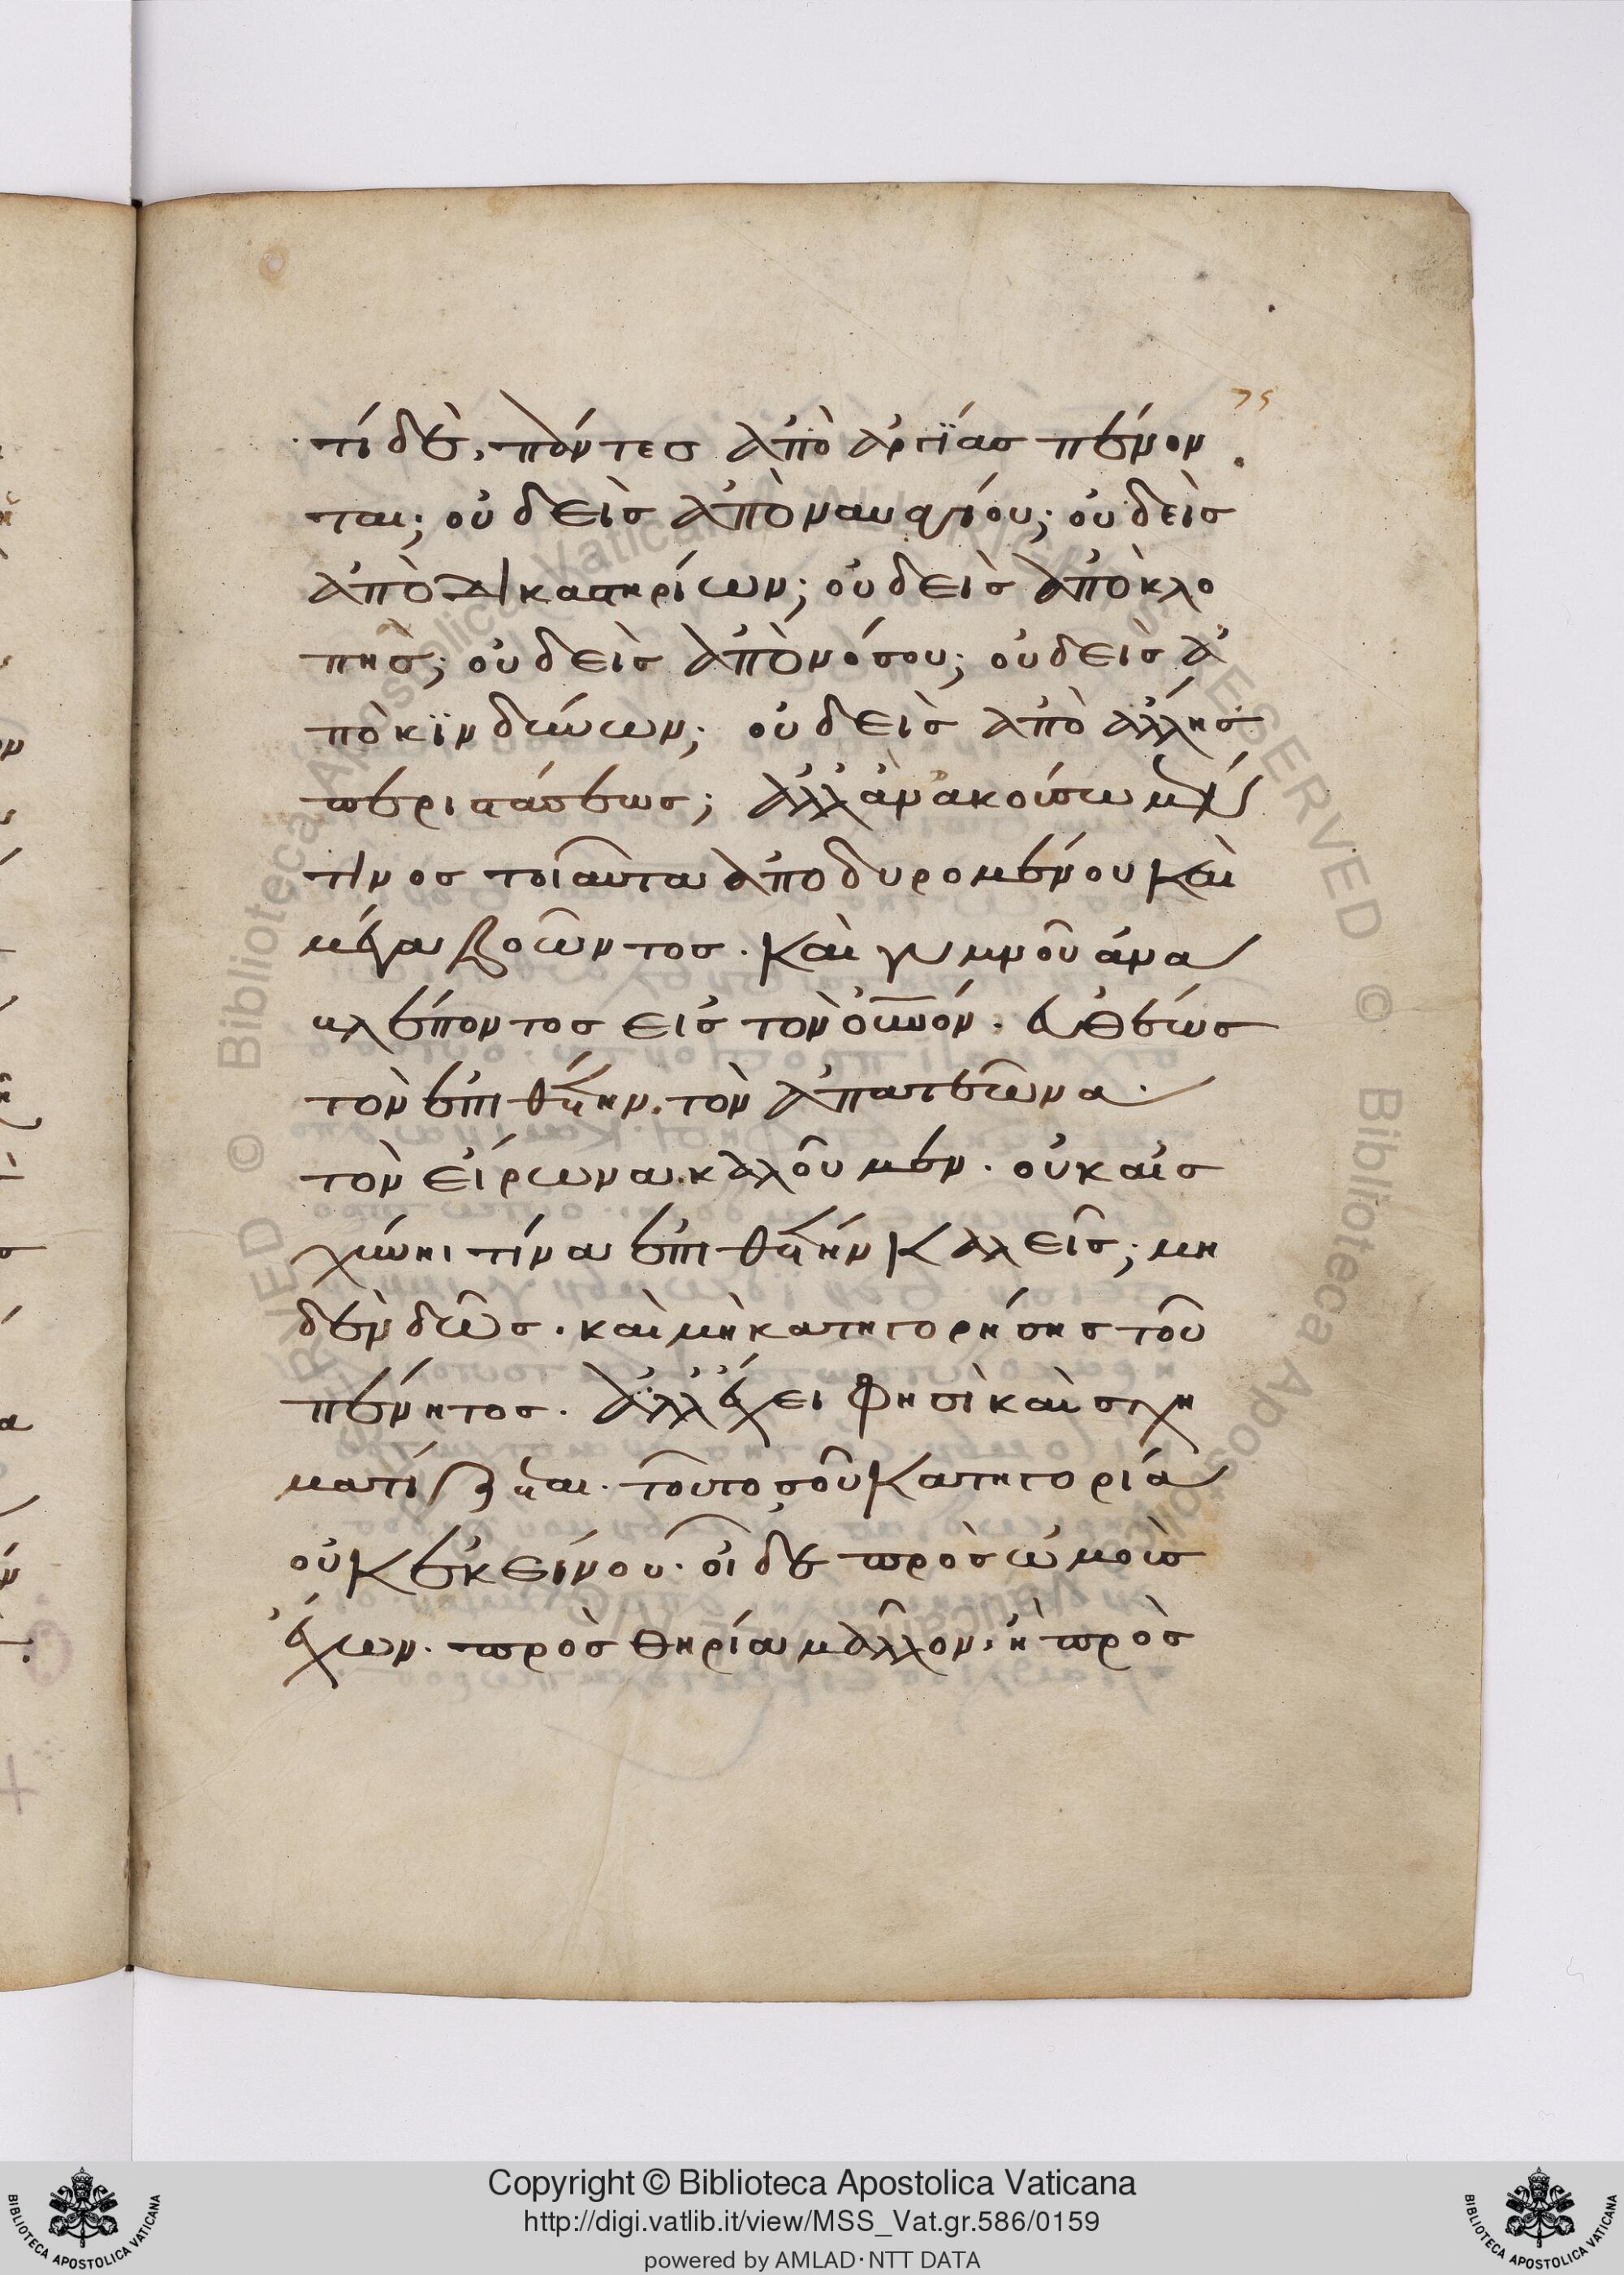 75
τί δὲ, πάντες ἀπὸ ἀργίας πένον
ται; οὐδεὶς ἀπὸ ναυαγίου; οὐδεὶς
ἀπὸ δικαστηρίων; οὐδεὶς ἀπὸ κλο
πῆς; οὐδεὶς ἀπὸ νόσου; οὐδεὶς ἀ
πὸ κϊνδύνων; οὐδεὶς ἀπὸ ἄλλης
περιστάσεως; ἀλλ' ἂν ἀκούσωμέν
τινος τοιαῦτα ἀποδυρομένου καὶ
μέγα βοῶντος. καὶ γυμνοῦ ἄνα
βλέποντος εἰς τὸν οὐνόν.
τὸν ἐπιθέτην. τὸν ἀπατεῶνα.
τὸν εἴρωνα καλοῦμεν. οὐκ αἰσ
χύνηι τίνα ἐπιθέτην καλεῖς; μη
δὲν δῷς. καὶ μὴ κατηγορήσης τοῦ
πένητος. ἀλλ' ἔχει φησὶ καὶ σχη
ματίζεται. τοῦτο σοῦ κατηγορία
οὐκ ἐκείνου. οἶδε πρὸς ὠμοὺς
ἔχων. πρὸς θηρία μᾶλλον, ἢ πρὸς
Copyright © Biblioteca Apostolica Vaticana
http://digi.vatlib.it/view/MSS_Vat.gr.586/0159
powered by AMLAD·NTT DATA
BIBLIOTECA APOSTOLICA VATICANA
BIBLIOTECA APOSTOLICA VATICANA